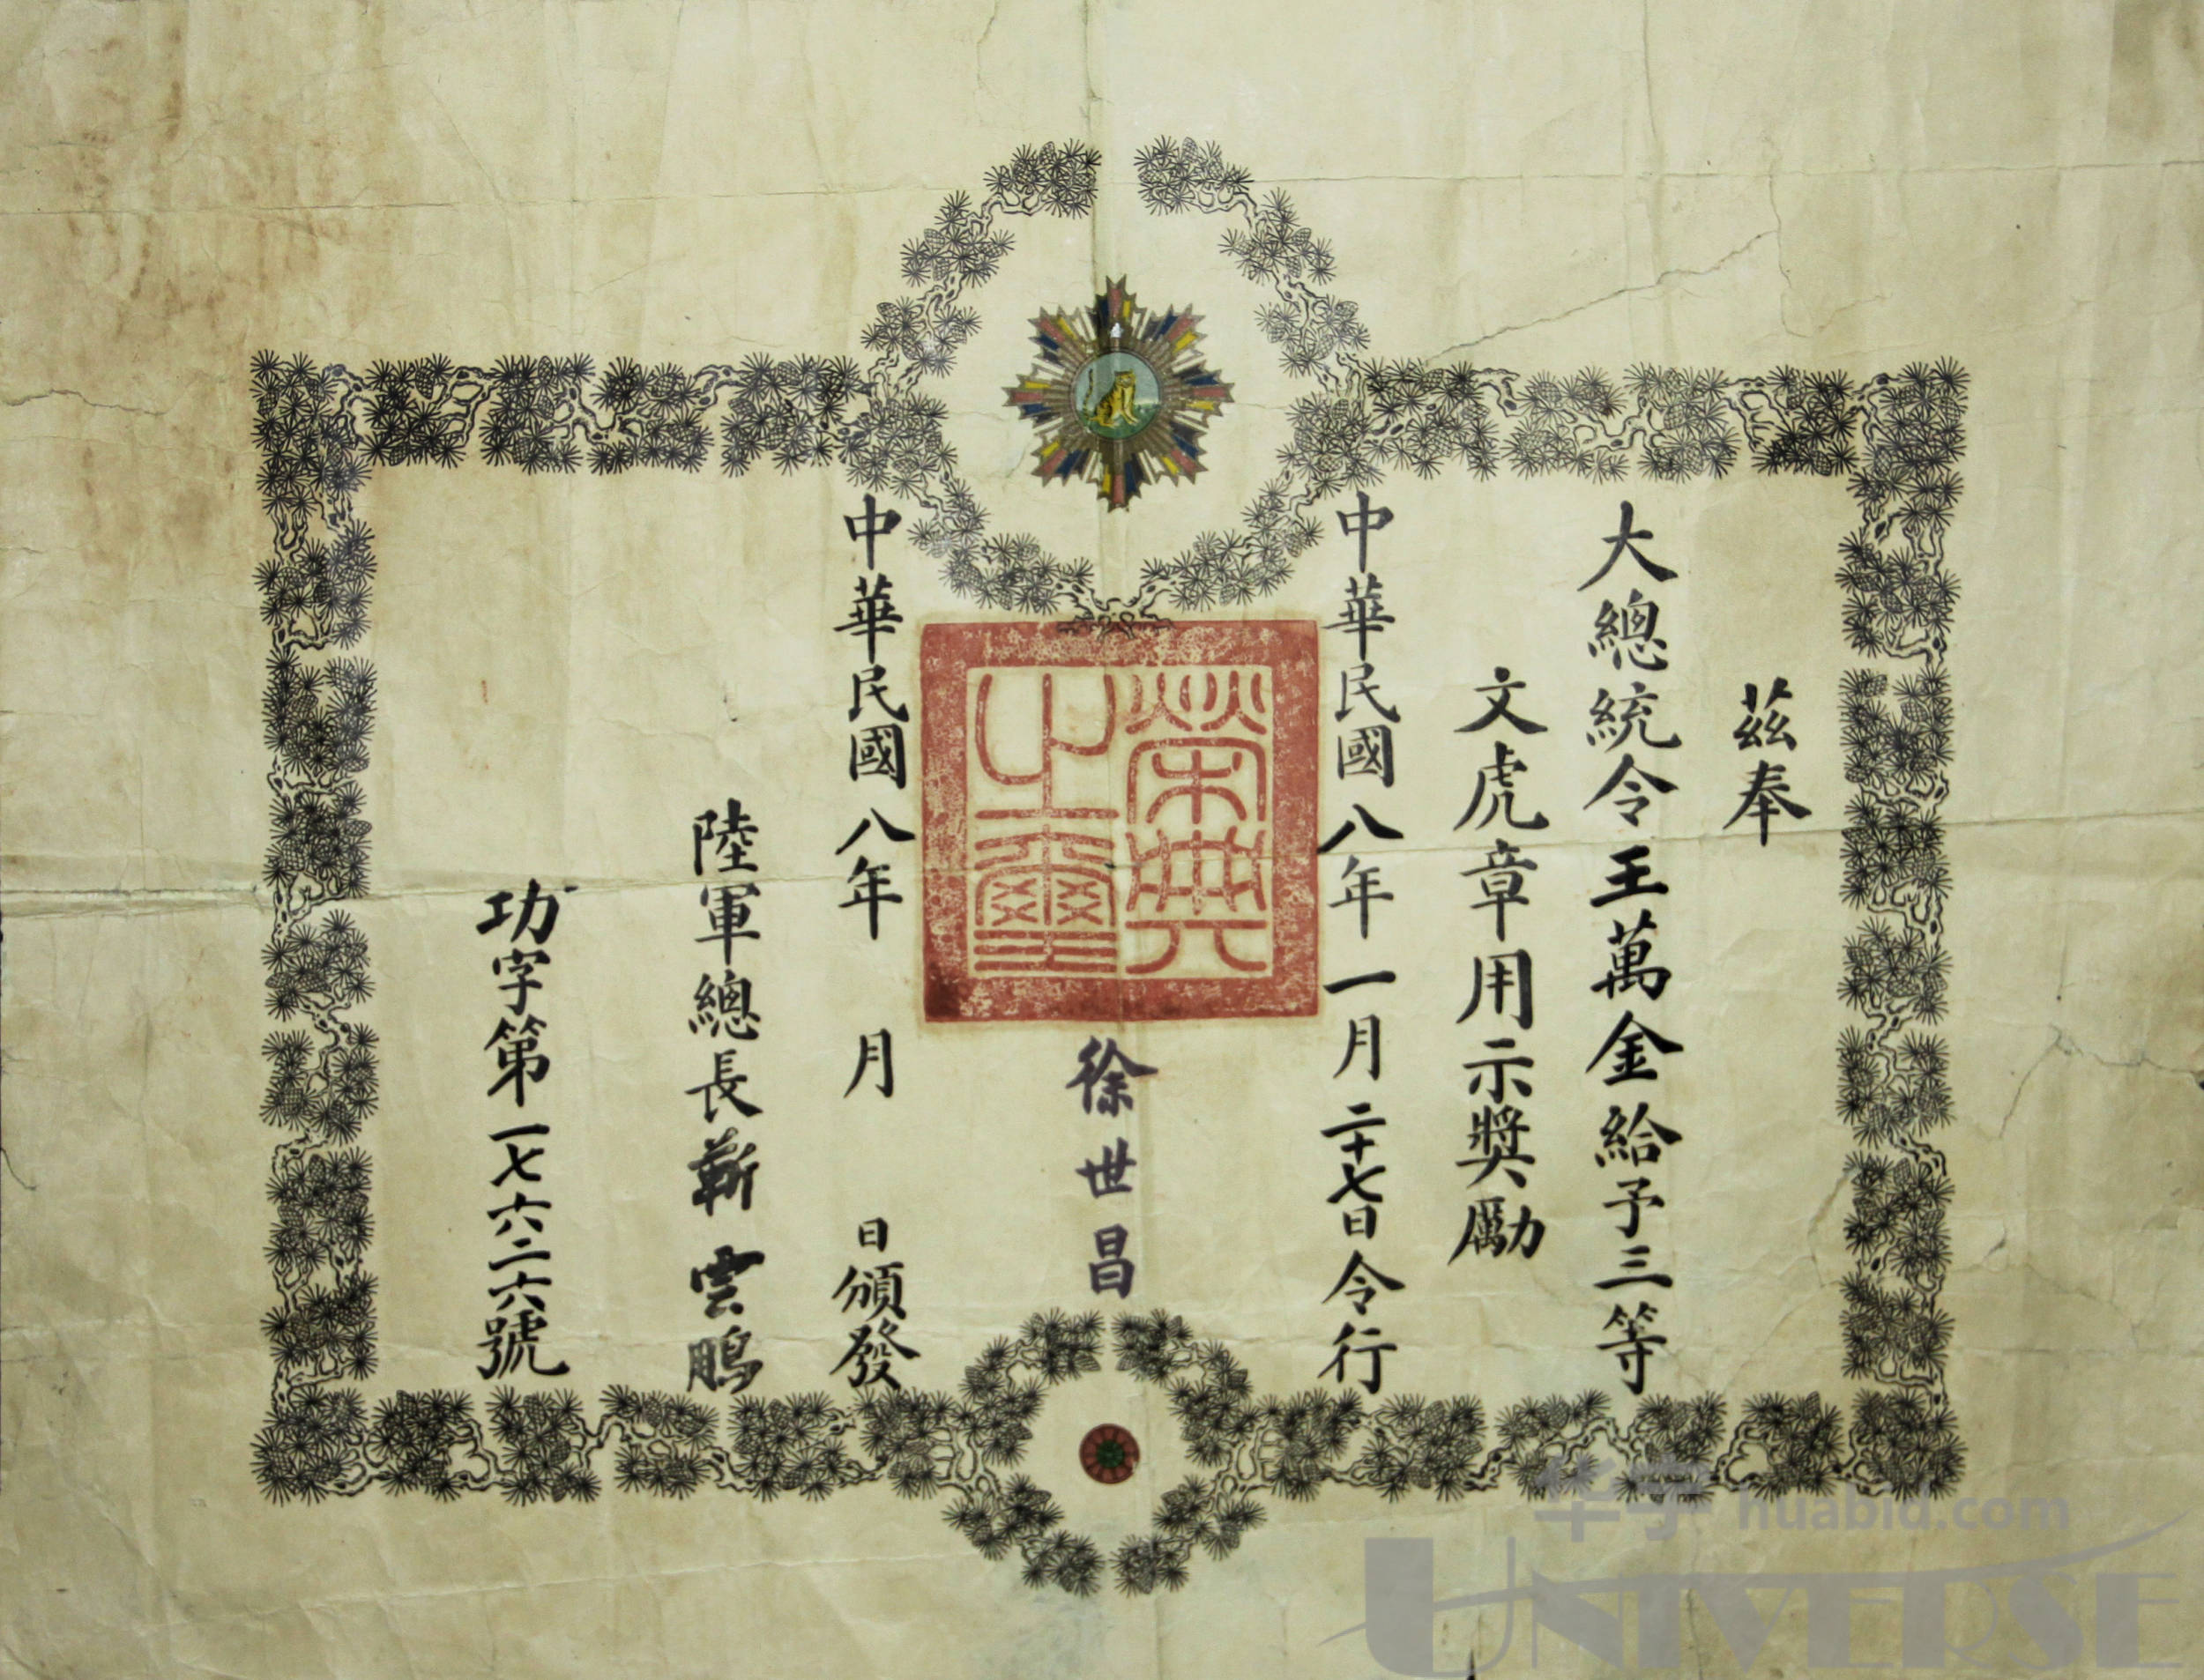 茲奉
大總統令王萬金給予三等
文虎章用示獎勵
中華民國八年一月二十七日令行
榮典之璽
徐世昌
中華民國八年 月 日頒發
陸軍總長靳雲鵬
功字第一七六二六號
华宇 huabid.com
UNIVERSE